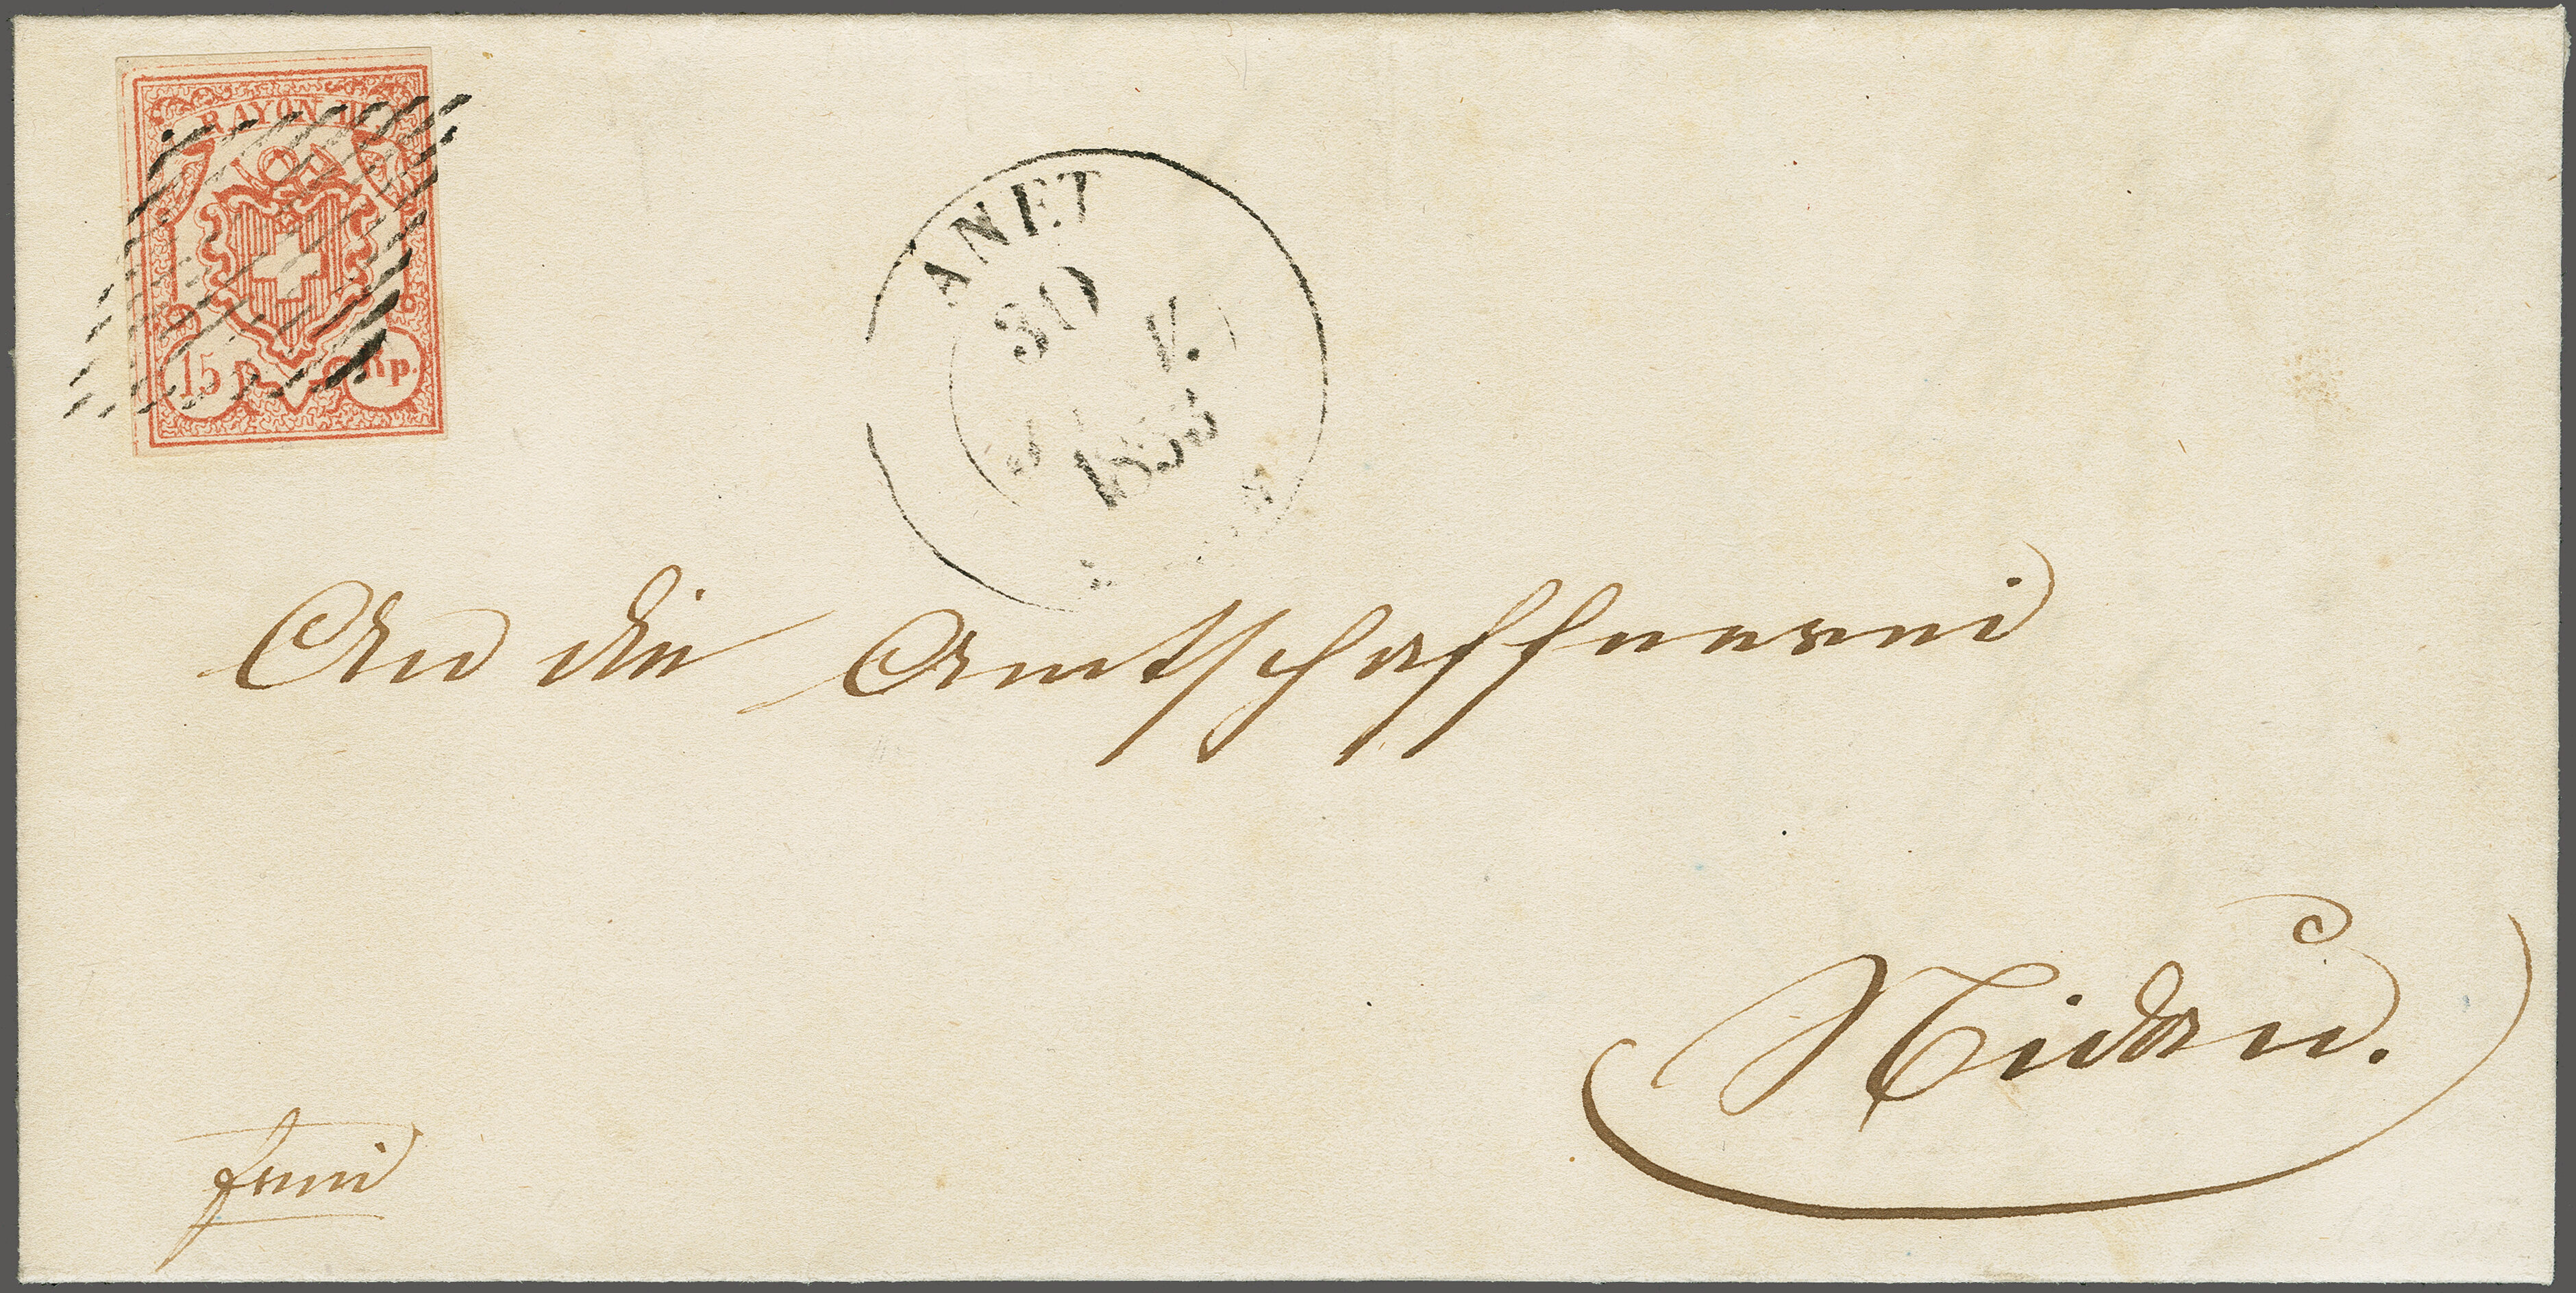 RAYON III.
15 Rp.
ANET
30
1853
An die Amtschaffnerei
Nidau.
frei